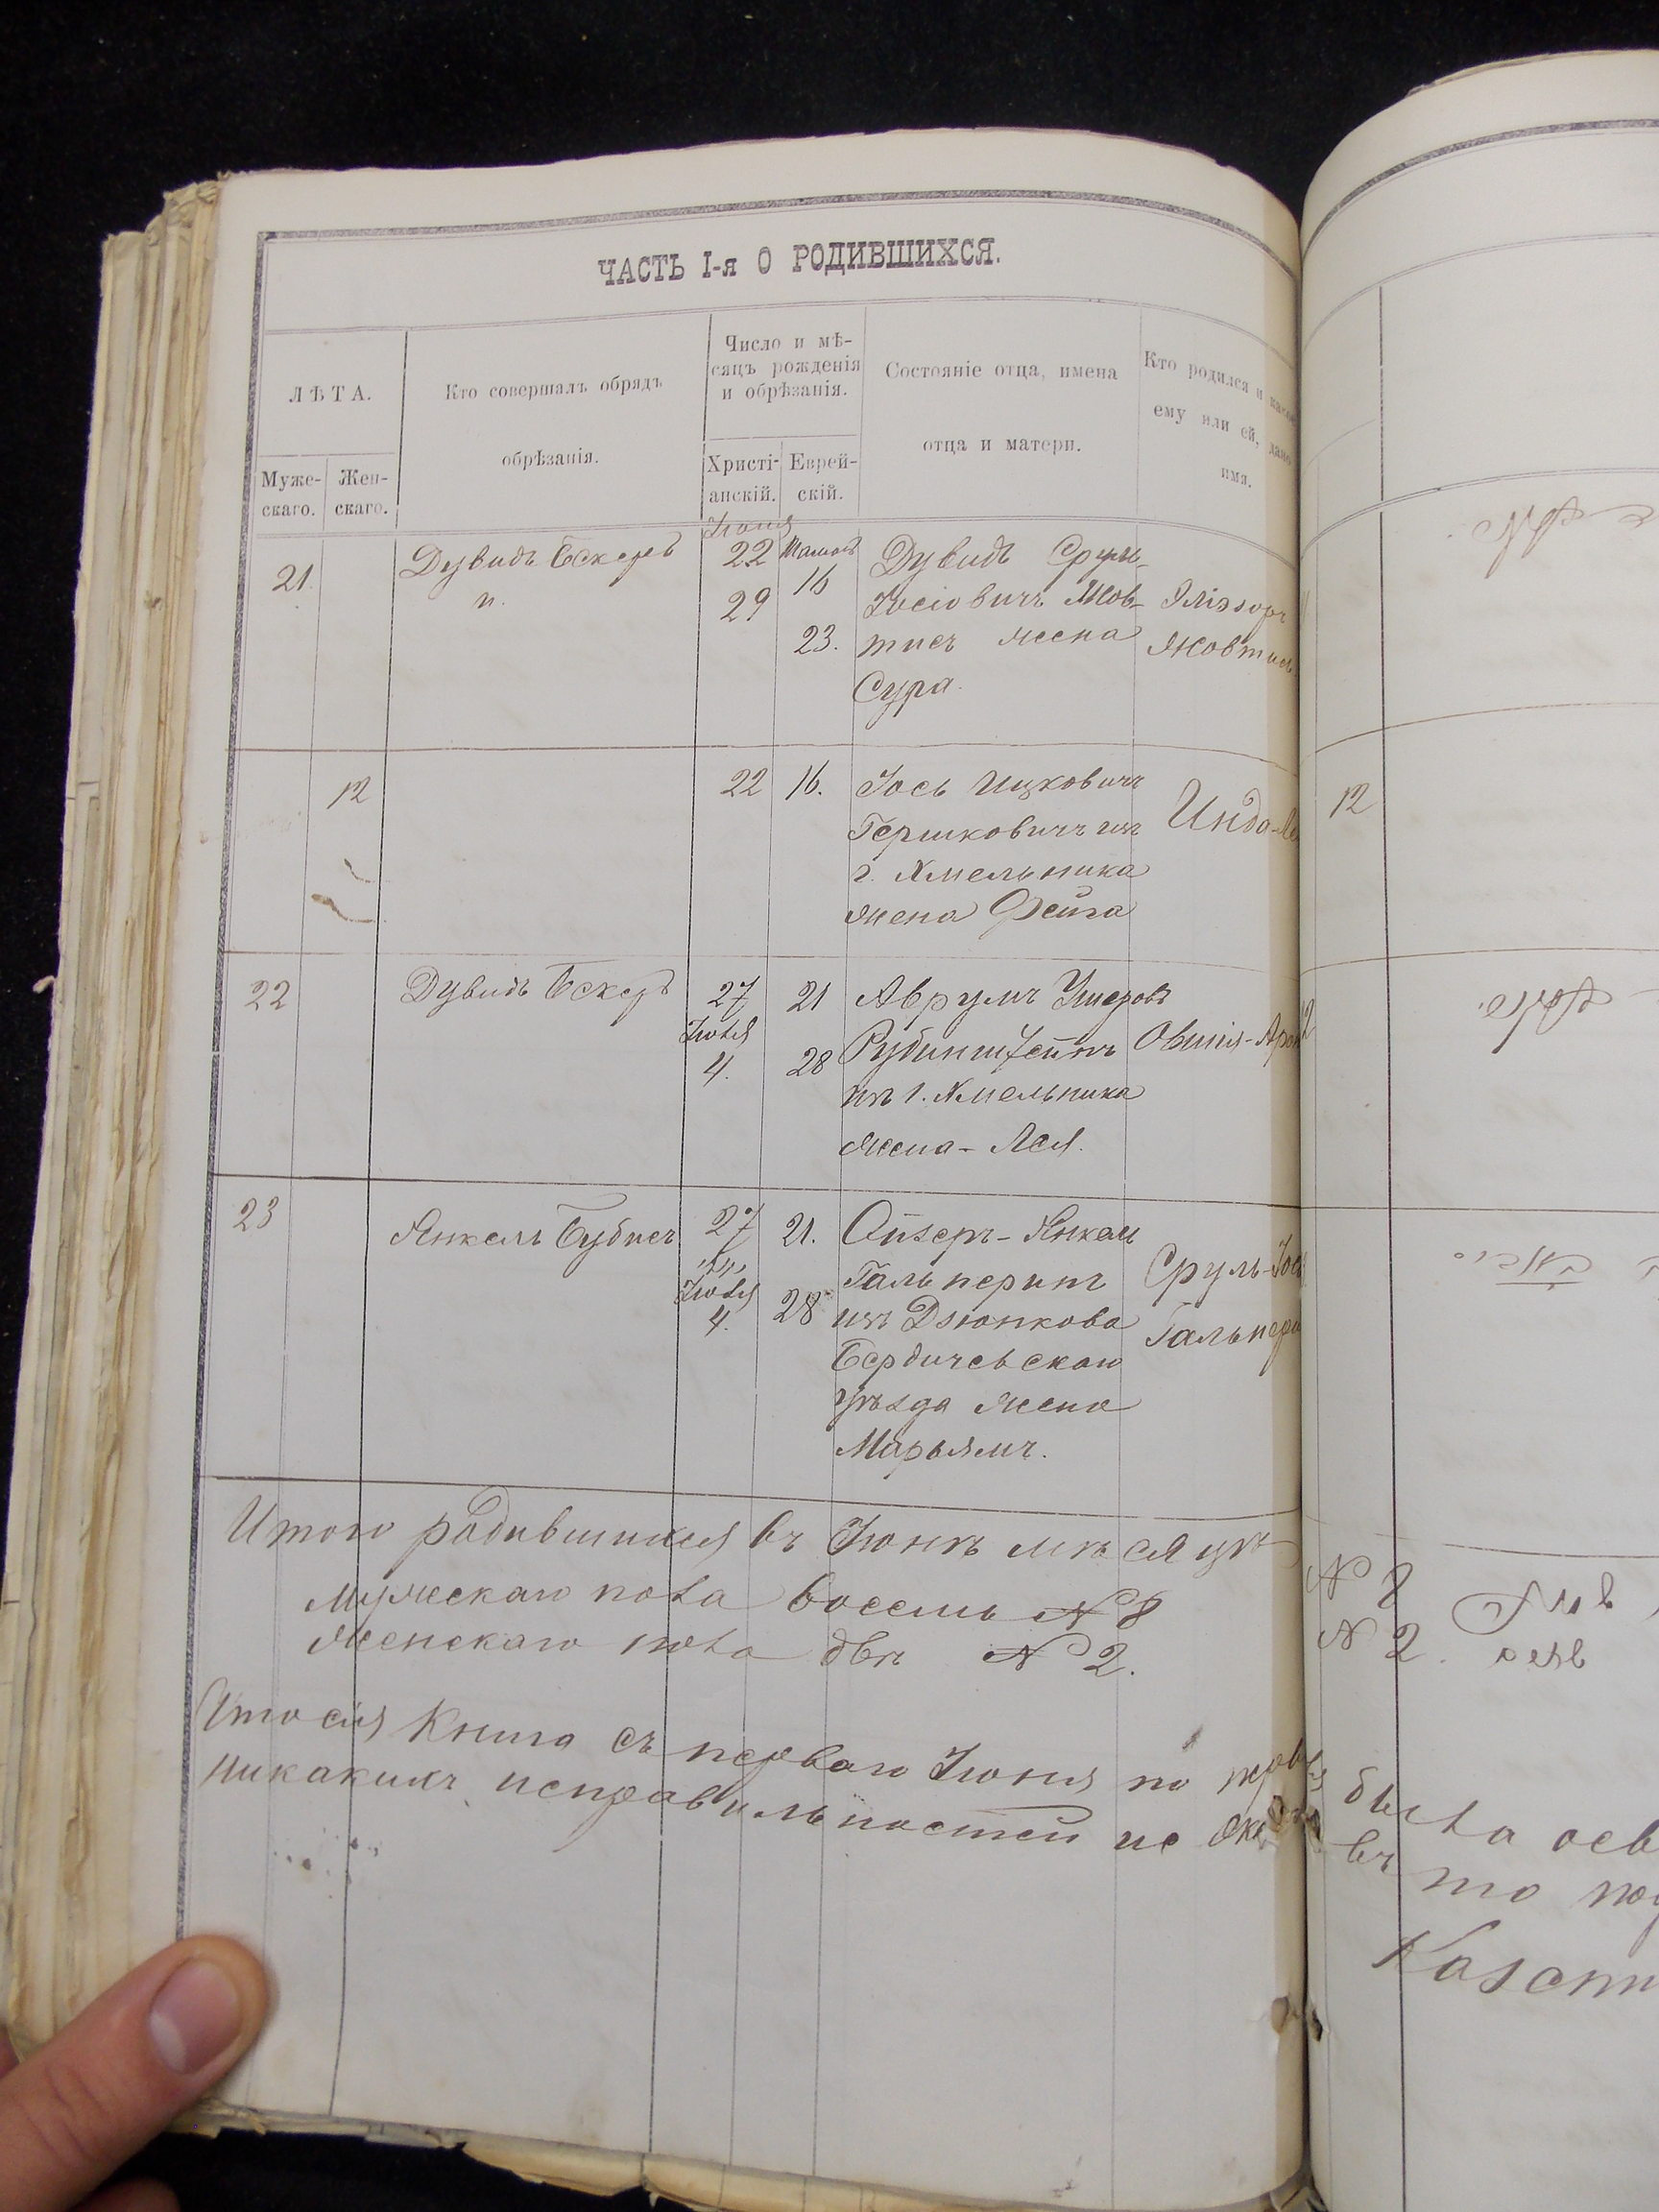 ЧАСТЬ I-я О РОДИВШИХСЯ.
ЛѢТА.
Муже-
скаго.
Жен-
скаго.
Кто совершалъ обрядъ
обрѣзанія.
Число и мѣ-
сяцъ рожденія
и обрѣзанія.
Христі-
анскій.
Еврей-
скій.
Состояніе отца, имена
отца и матери.
Кто родился и какое
ему или ей, дано
имя.
21
Дувидъ Бекеръ
Іюня
22
29
16
23.
Дувидъ Сруль
Іосіовичъ Жов-
тисъ жена
Сура.
Жовтисъ
12
22
16.
Іось Ицковичъ
Гершковичъ изъ
г. Хмельника
жена Фейга
12
22
Дувидъ Бекеръ
27
Іюля
4.
21
28
Аврумъ Ушеровъ
Рубинштейнъ
изъ г. Хмельника
жена - Лея.
Овшія-Арон
23
Янкель Бубисъ
27
Іюля
4.
21.
28
Ойзеръ-Янкель
Гальперинъ
изъ Дзюнкова
Бердичевскаго
уѣзда жена
Марьямъ.
Сруль-Іось
Гальпери
Итого родившихся въ Іюнѣ мѣсяцѣ
мужескаго пола восемь № 8
женскаго пола двѣ № 2.
Что сія Книга съ перваго Іюня по
никакихъ неправильностей не
№ 8
№ 2.
была осв
въ
то
Казенн